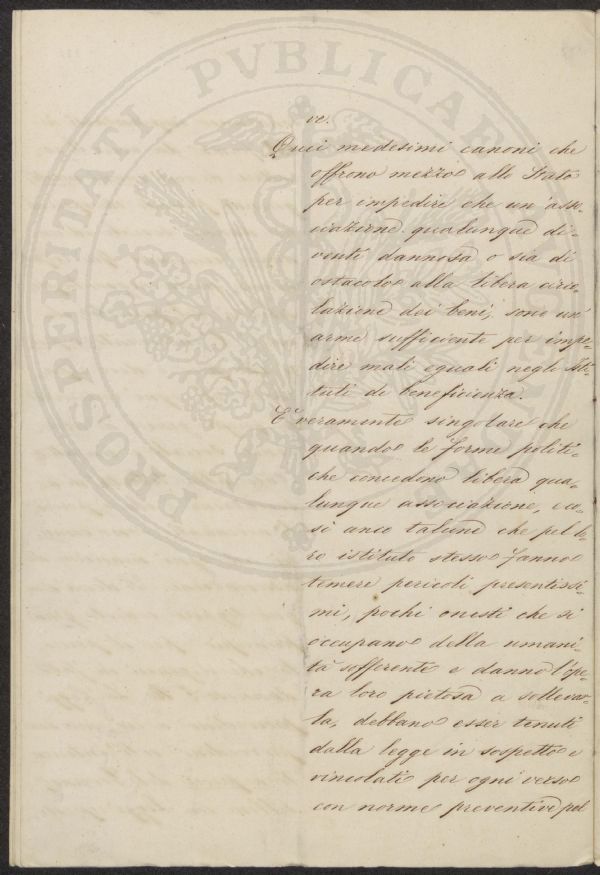 ve.
Quei medesimi canoni che
offrono mezzo allo Stato
per impedire che un'asso-
ciazione qualunque di-
venti dannosa o sia di
ostacolo alla libera circo-
lazione dei beni, sono un'
arme sufficiente per impe-
dire mali eguali negli Isti-
tuti di beneficienza.
E' veramente singolare che
quando le forme politi-
che concedono libera qua-
lunque associazione, e co-
si anco talune che pel lo-
ro istituto stesso fanno
temere pericoli presentissi-
mi, pochi onesti che si
occupano della umani-
tà sofferente e danno l'ope-
ra loro pietosa a sollevar-
la, debbano esser tenuti
dalla legge in sospetto e
vincolati per ogni verso
con norme preventive pel
PROSPERITATI PVBLICAE